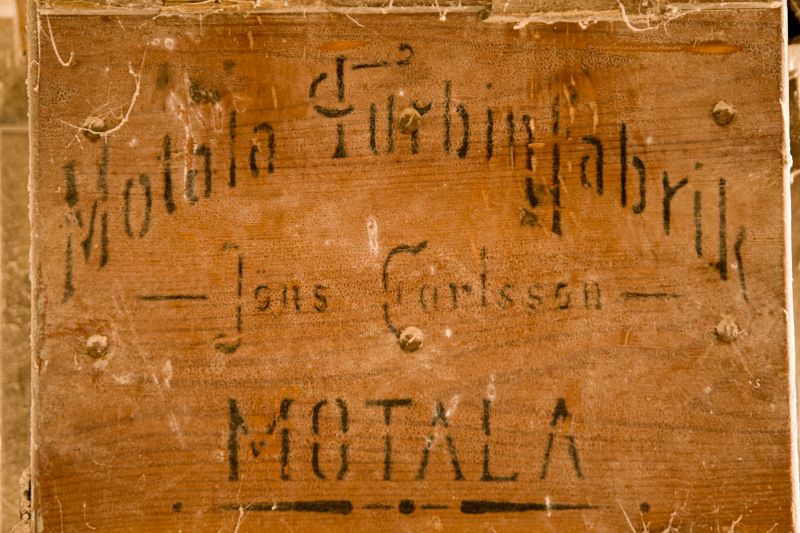 Motala Turbinfabrik
— Jöns Carlsson —
MOTALA